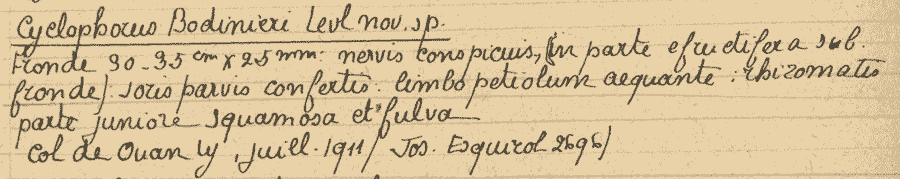 Cyclophorus Bodinieri Levl nov. sp.
Fronde 30-35 cm x 25 mm. nervis conspicuis, (in parte efructifera sub.
fronde) soris parvis confertis. limbo petiolum aequante: rhizomatis
parte juniore squamosa et fulva
Col de Ouan ly, juill. 1911 / Jos. Esquirol 2696)